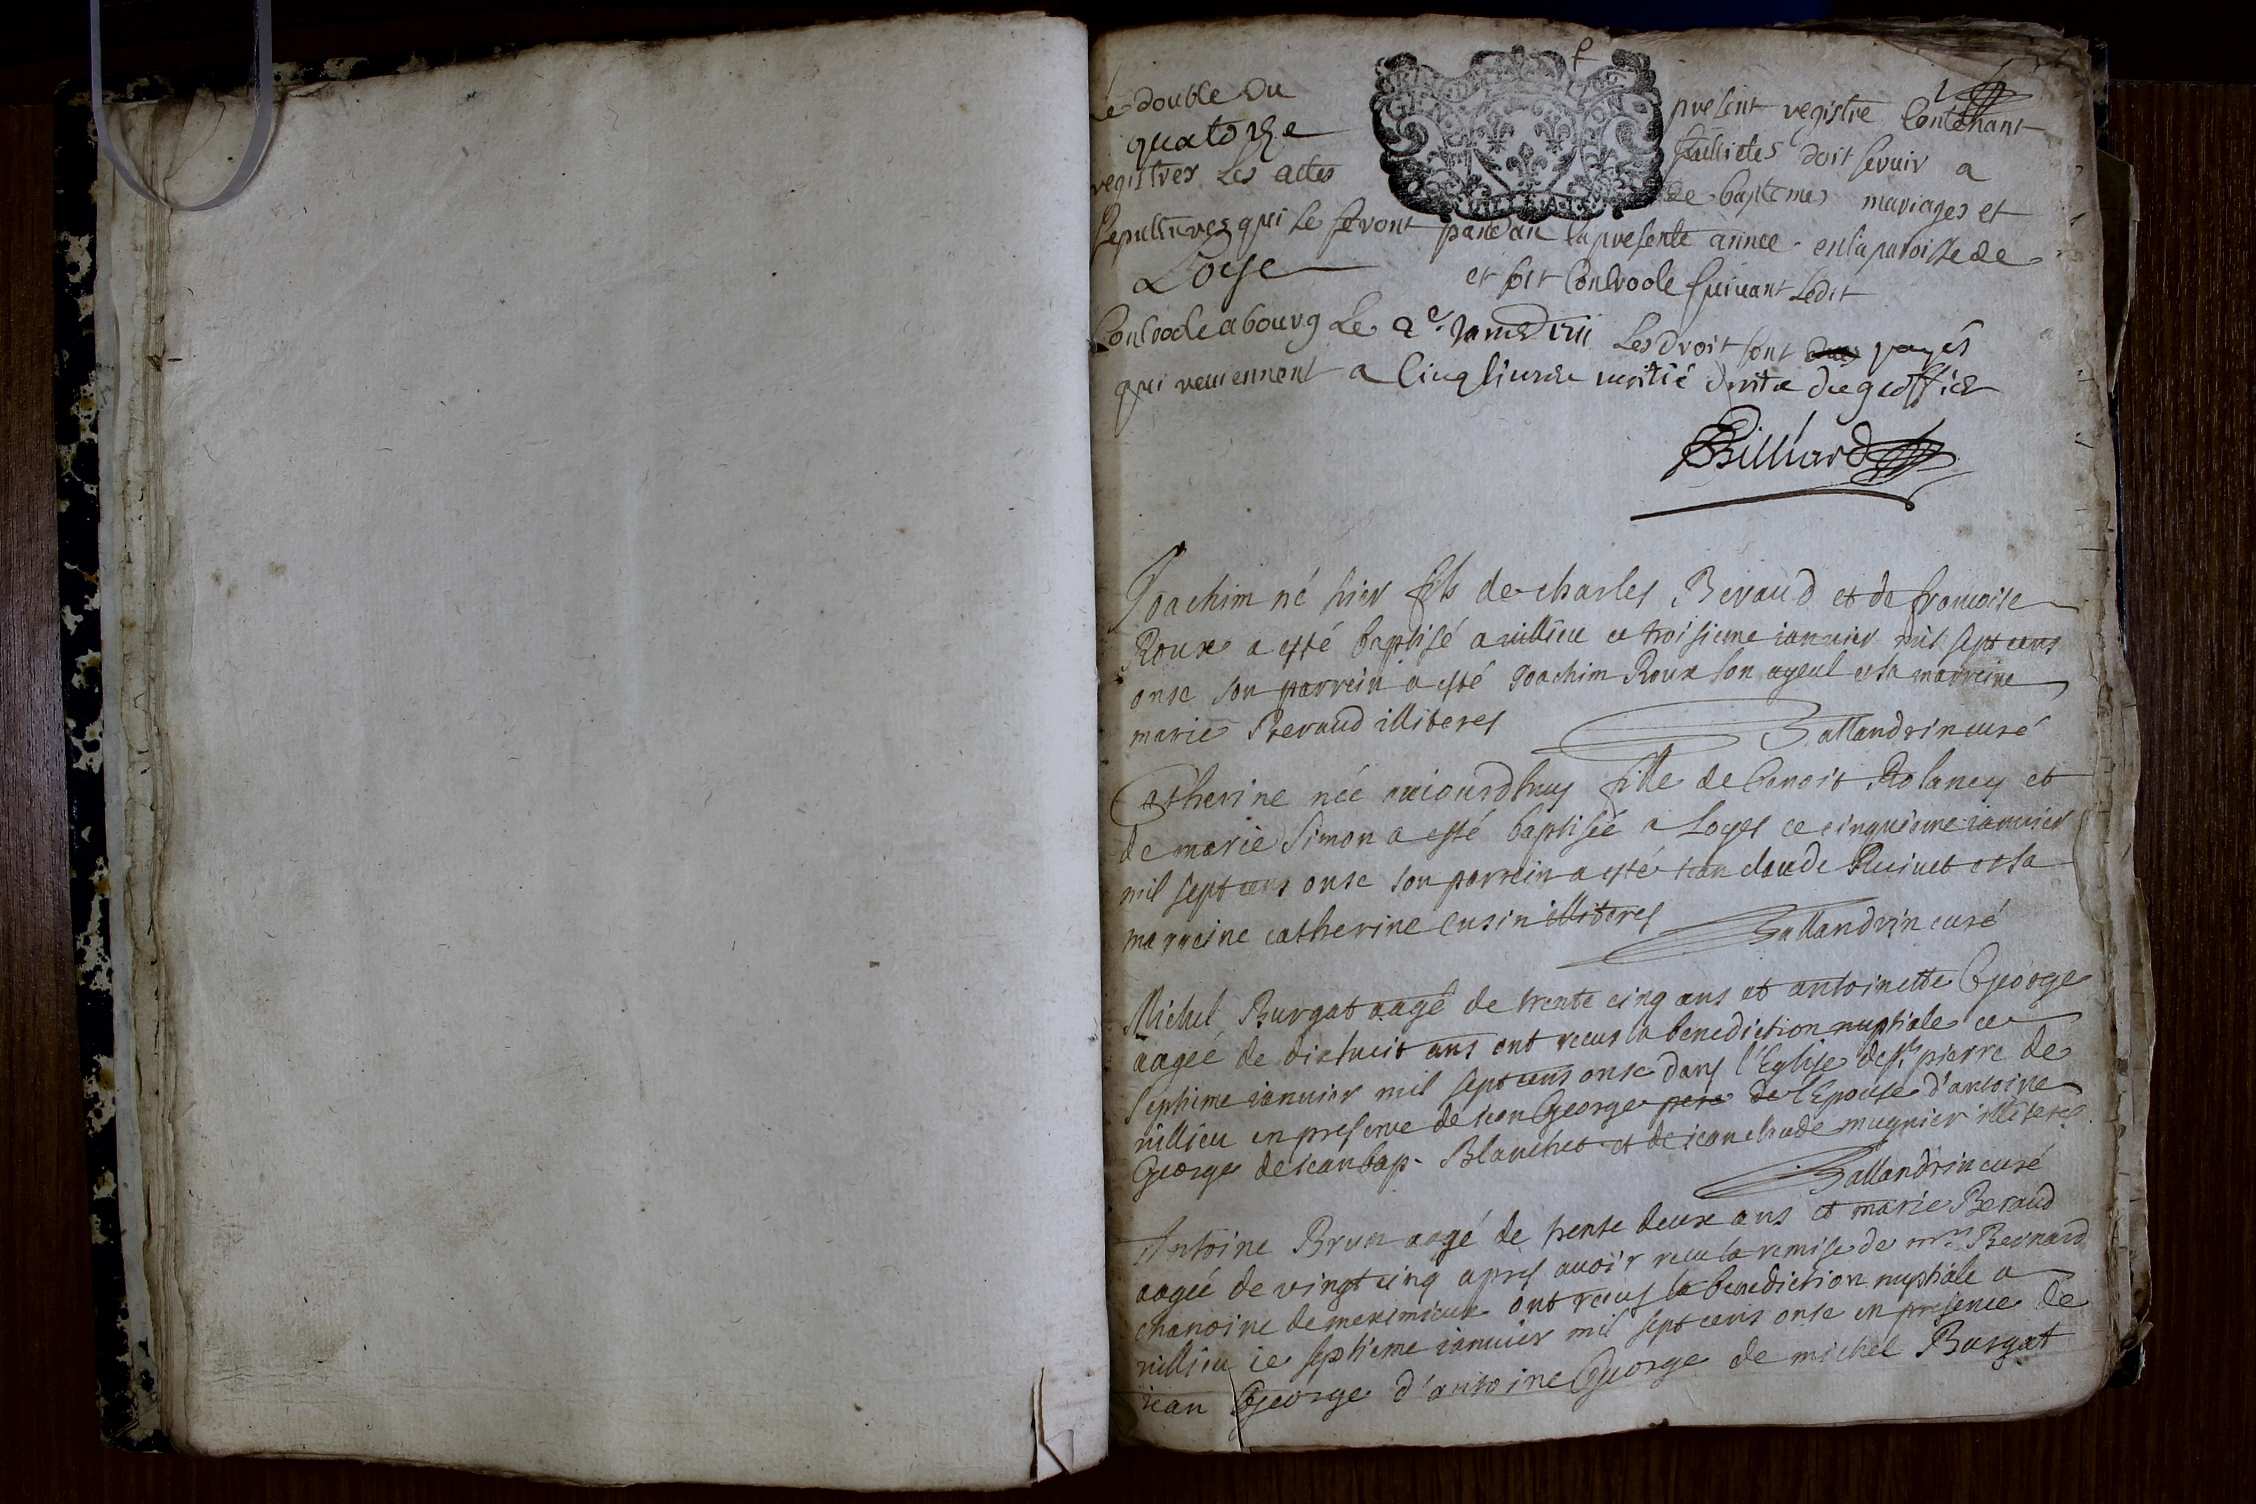 Le double du present registre Contenant
quatorze feullietes doit servir a
registrer Les actes de baptemes mariages et
sepultures qui se feront pandan la presente annee en la paroisse de
Loye et soit Controole suivant Ledit
Controole a bourg Le 2e Janvr 1711 Les droit sont payés
qui reviennent a Cinq livres moitié droits du greffier
Billiard
Joachim né hier fils de charles Beraud et de francoise
Roux a esté baptisé a villieu ce troisieme ianvier mil sept cens
onse son parrein a esté Joachim Roux son ayeul et sa marreine
marie Beraud illiteres Ballandrin curé
Catherine née auiourdhuy fille de benoit Rolancy et
de marie Simon a esté baptisée a Loyes ce cinquieme ianvier
mil sept cens onse son parrein a esté iean claude et sa
marreine catherine Cusin illiteres Ballandrin curé
Michel Burgat aagé de trente cinq ans et antoinette George
aageé de dixhuit ans ont receus la benediction nuptiale ce
septieme ianvier mil sept cens onse dans l'Eglise de st pierre de
villieu en presence de iean George pere de l'Epouse d'antoine
George de iean bap. Blanchet et de iean claude mugnier illiteres
Ballandrin curé
Antoine Brun aagé de trente deux ans et marie Beraud
aageé de vingt cinq apres avoir receu la remise de mre Bernard
chanoine de meximieux ont receus la benediction nuptiale a
villieu ce septieme ianvier mil sept cens onse en presence de
iean George d'antoine George de michel Burgat